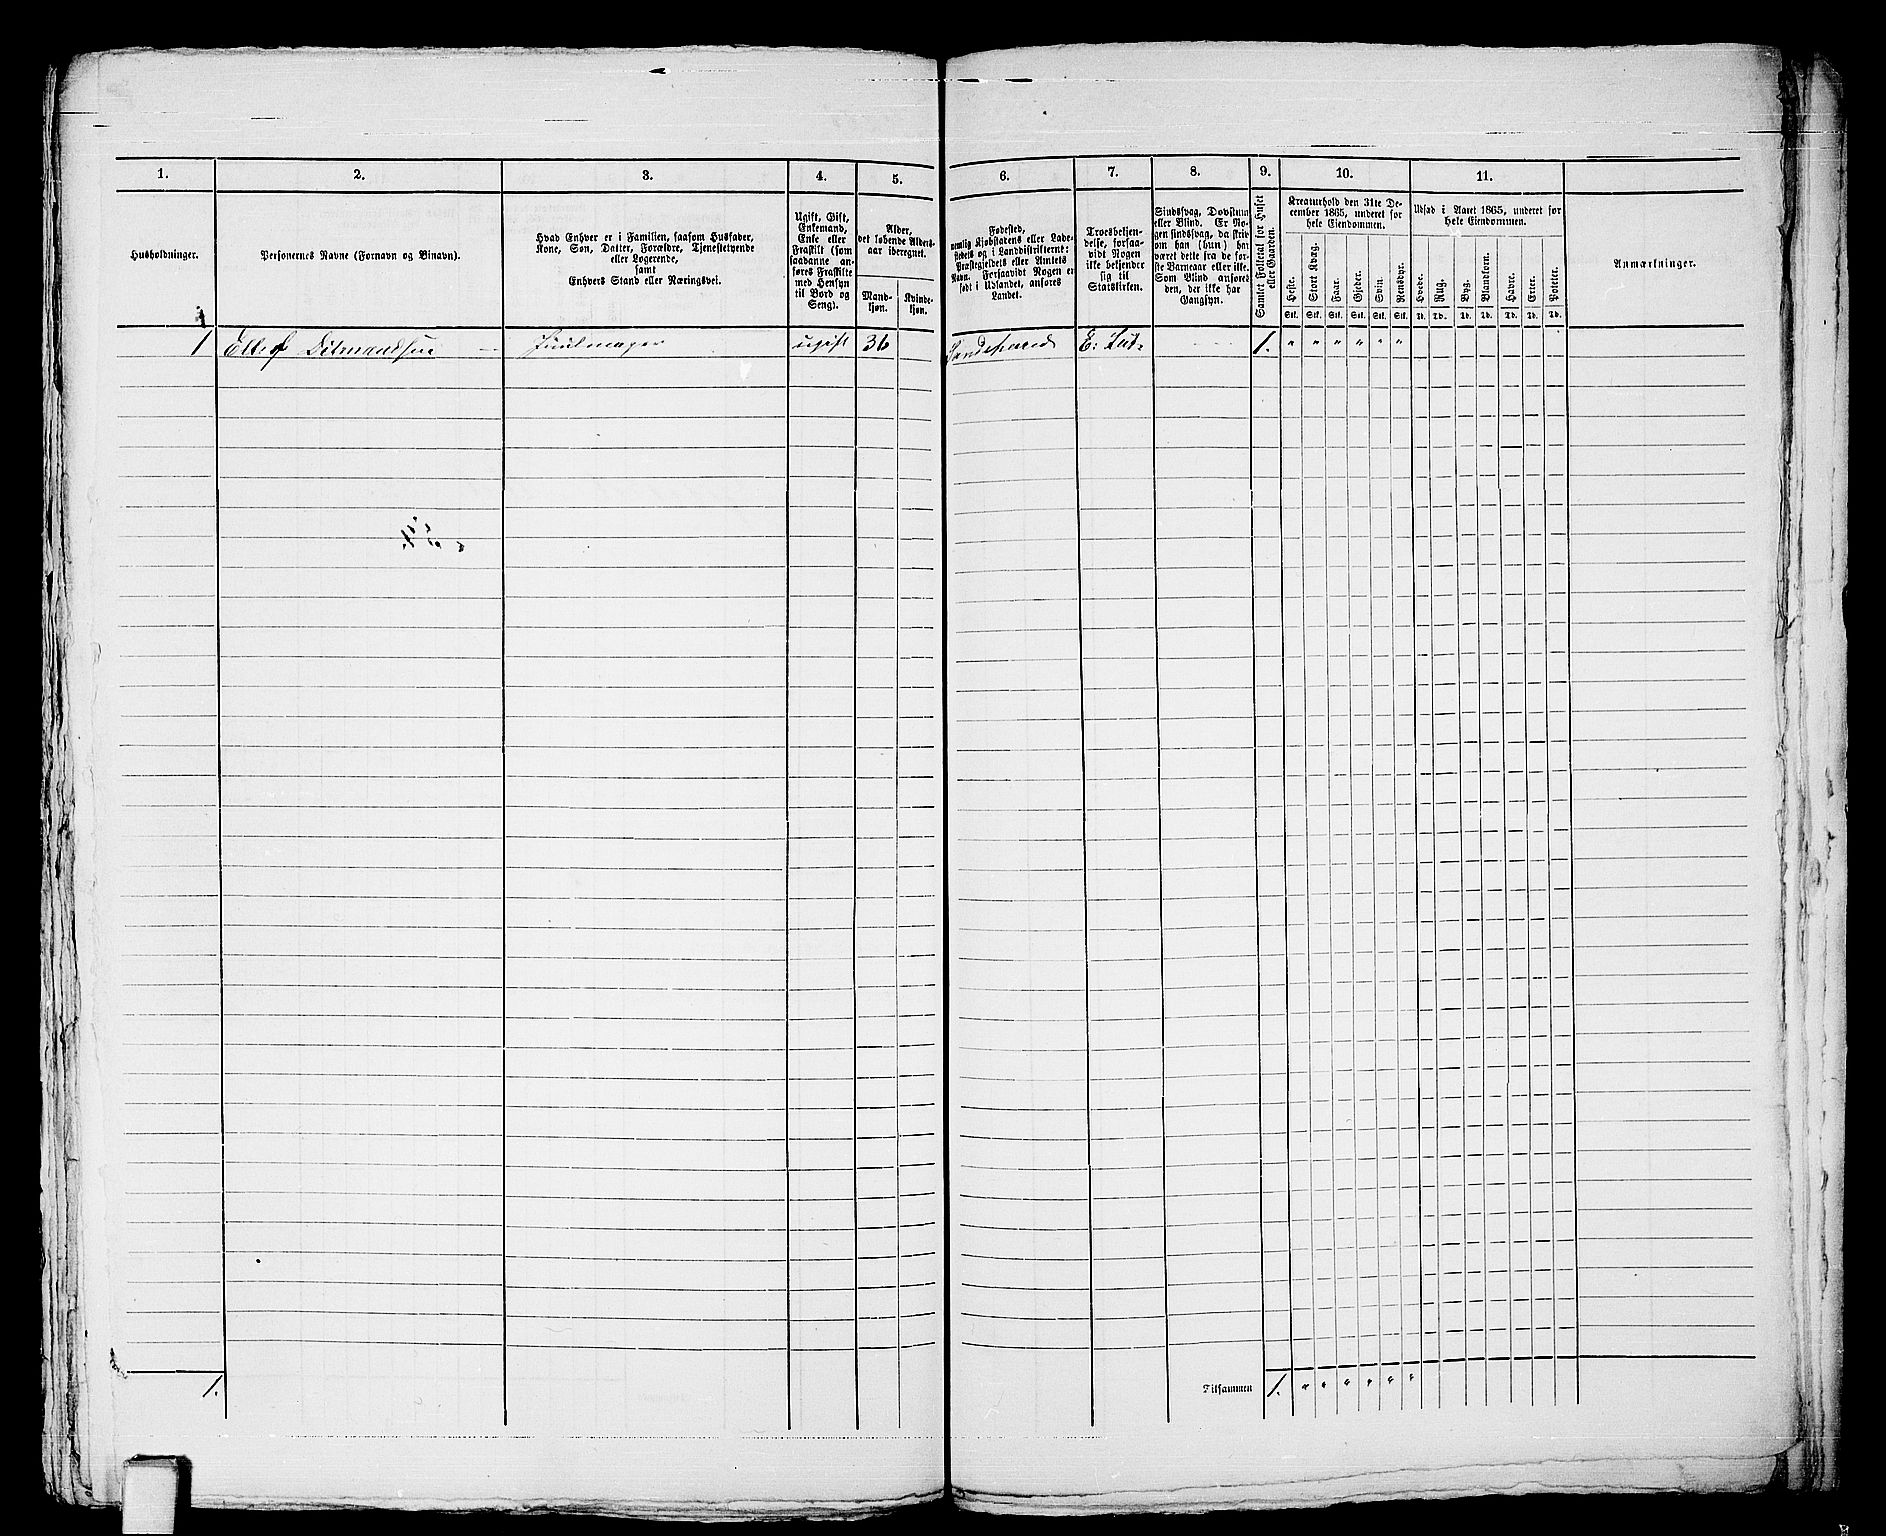 1.
2.
3.
4.
5.
6.
7.
8.
9.
10.
11.
Husholdninger.
Personernes Navne (Fornavn og Binavn).
Hvad Enhver er i Familien, saasom Husfader,
Kone, Søn, Datter, Forældre, Tjenestetyende
eller Logerende,
samt
Enhvers Stand eller Næringsvei.
Ugift, Gift,
Enkemand,
Enke eller
Fraskilt (som
saadanne an-
føres Fraskilte
med Hensyn
til Bord og
Seng).
Alder,
det løbende Alders-
aar iberegnet.
Mand-
kjøn.
Kvinde-
kjøn.
Fødested,
nemlig Kjøbstadens eller Lade-
stedets og i Landdistrikterne:
Præstegjeldets eller Amtets
Navn. Forsaavidt Nogen er
født i Udlandet, anføres
Landet.
Troesbekjen-
delse, forsaa-
vidt Nogen
ikke bekjender
sig til
Statskirken.
Sindssvag, Døvstum
eller Blind. Er No-
gen sindssvag, da skriv
om han (hun) har
været dette fra de før-
ste Barneaar eller ikke.
Som Blind anføres
den, der ikke har
Gangsyn.
Samlet Folketal for Huset
eller Gaarden.
Kreaturhold den 31te De-
cember 1865, underet for
hele Eiendommen.
Heste.
Stort Kvæg.
Faar.
Gjeder.
Svin.
Rensdyr.
Stk. Stk. Stk. Stk. Stk. Stk.
Udsæd i Aaret 1865, underet for
hele Eiendommen.
Hvede.
Rug.
Byg.
Blandkorn.
Havre.
Erter.
Poteter.
Td. Td. Td. Td. Td. Td. Td.
Anmærkninger.
1 Ellef Ditmandsen — ugift 36 Sandeherred E: Lut. 1. " " " " " "
1.
Tilsammen 1. " " " " " "